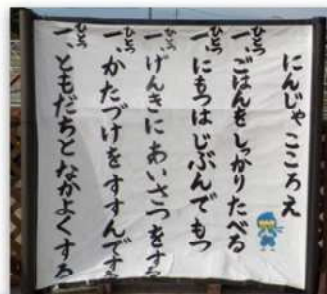 にんじゃ こころえ
一、ひとつ ごはんをしっかりたべる
一、ひとつ にもつはじぶんでもつ
一、ひとつ げんきにあいさつをする
一、ひとつ かたづけをすすんです
一、ひとつ ともだちとなかよくする